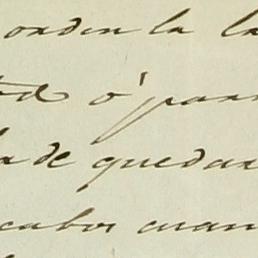 orden la la
ó para
da de quedar
cabos cuan